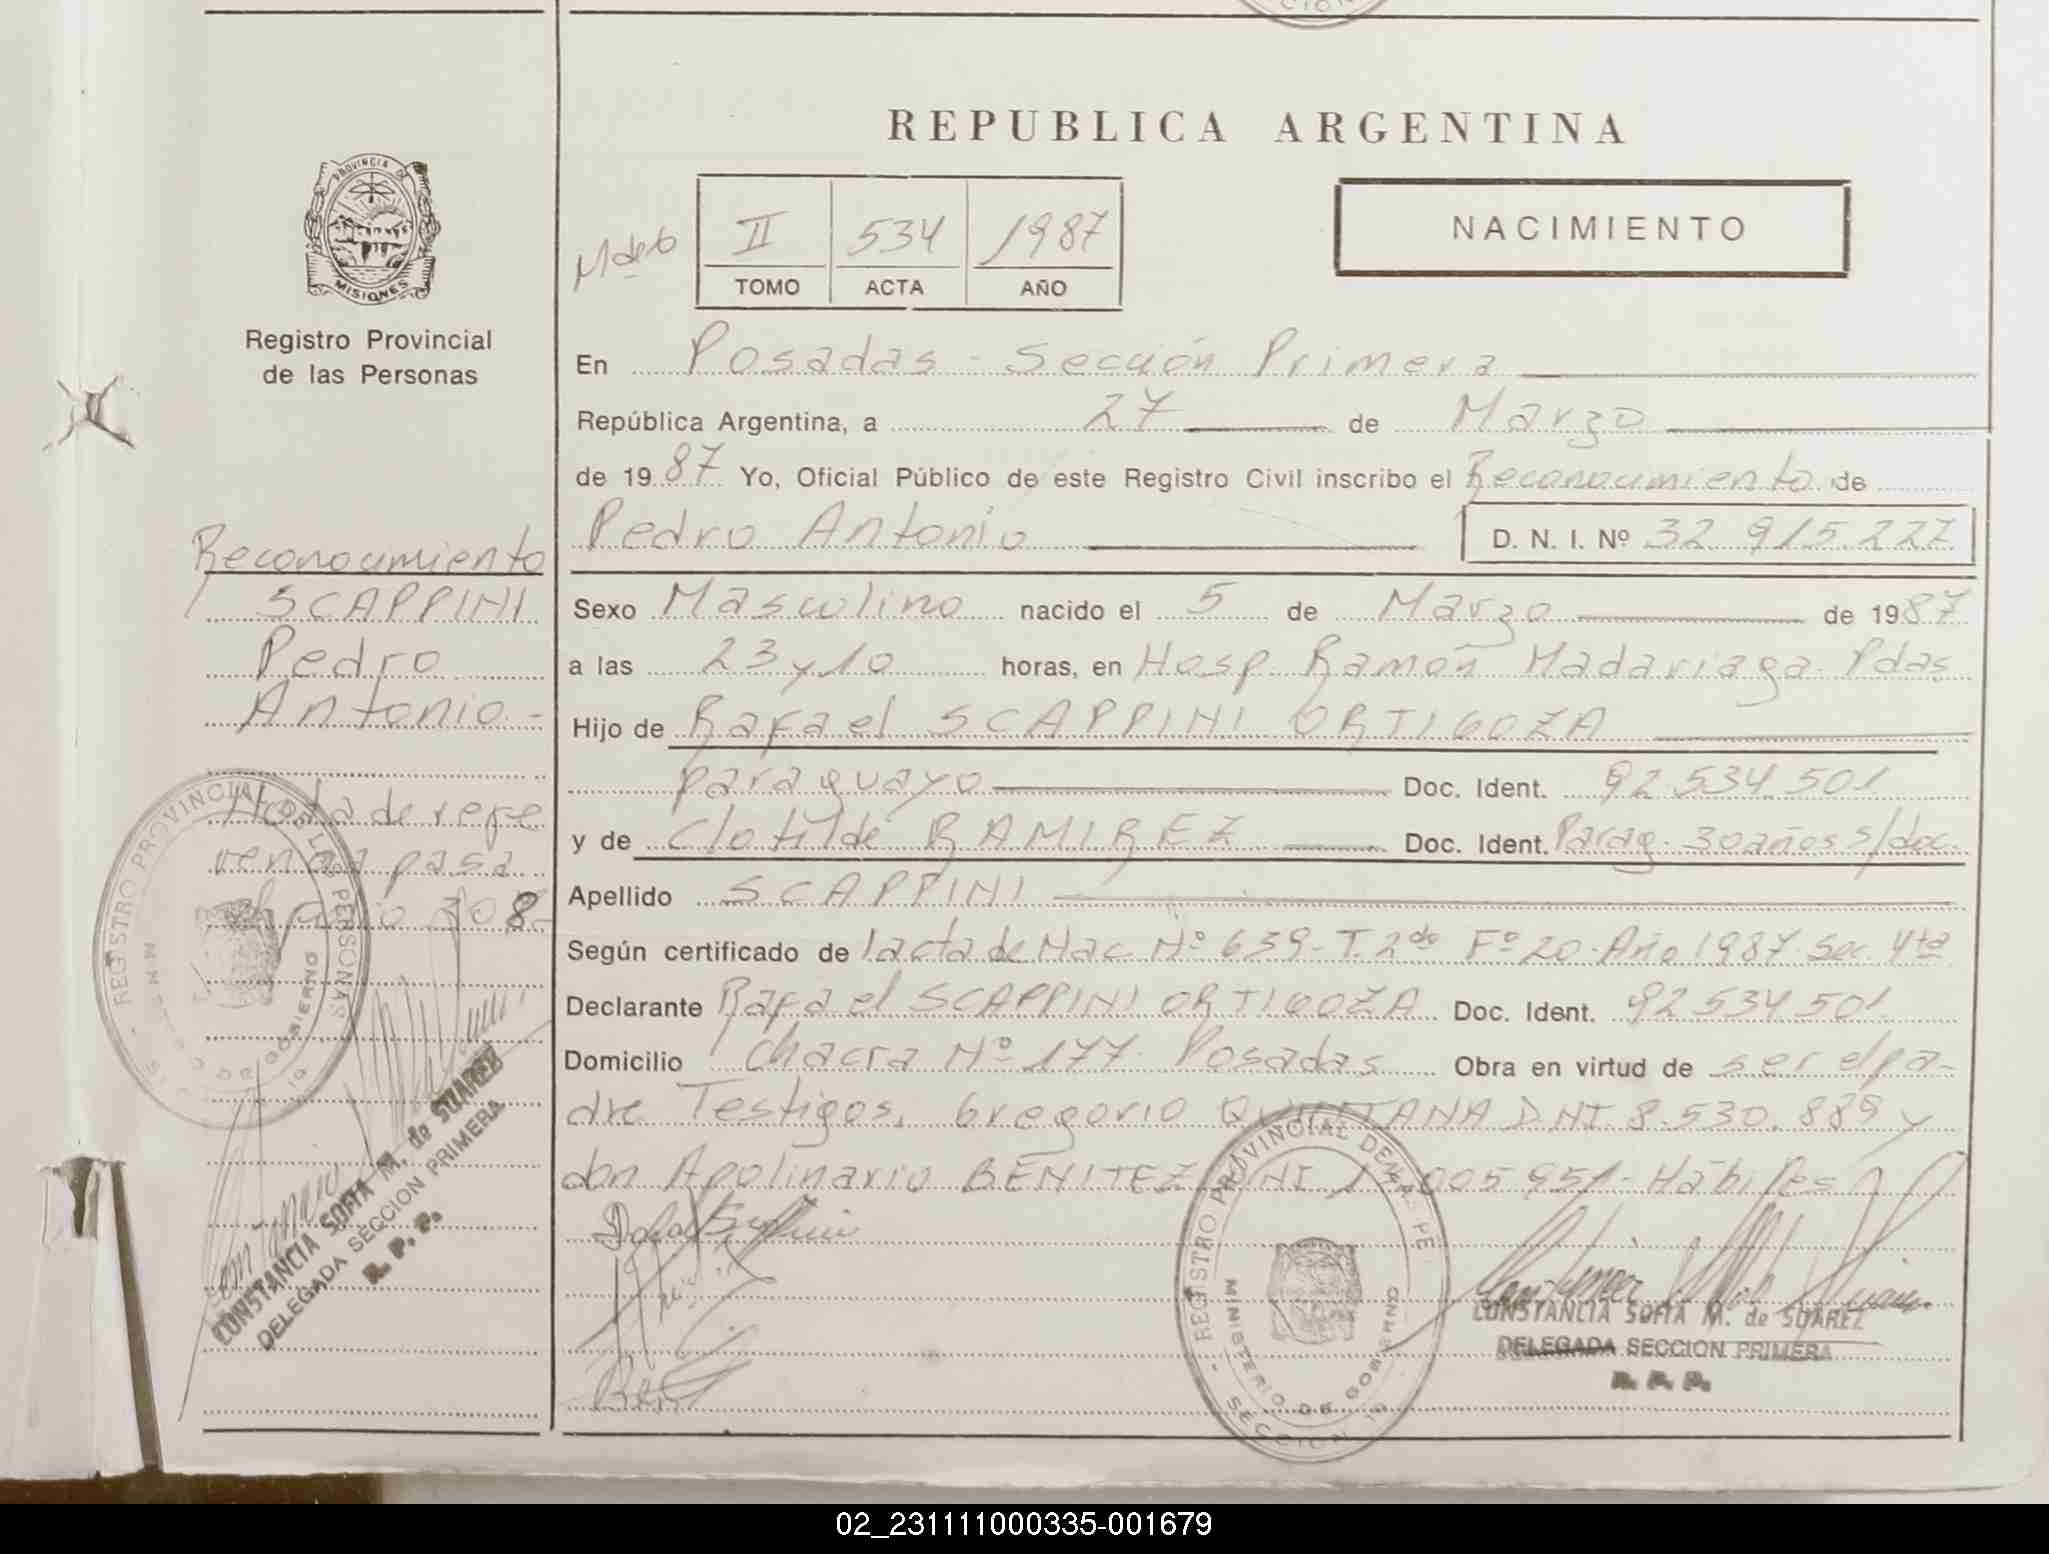 REPUBLICA ARGENTINA
PROVINCIA DE
MISIONES
Registro Provincial
de las Personas
II 534 1987
TOMO ACTA AÑO
NACIMIENTO
En Posadas - Sección Primera
República Argentina, a 27 de Marzo
de 1987 Yo, Oficial Público de este Registro Civil inscribo el Reconocimiento de
Pedro Antonio D. N. I. Nº 32.915.227
Sexo Masculino nacido el 5 de Marzo de 1987
a las 23 y 10 horas, en Hosp. Ramón Madariaga. Pdas.
Hijo de Rafael SCAPPINI ORTIGOZA
paraguayo Doc. Ident. 92.534.501
y de Clotilde RAMIREZ Doc. Ident. Parag. 30 años s/doc.
Apellido SCAPPINI
Según certificado de 1 acta de Nac. Nº 639 - T. 2do Fº 20 - Año 1987. Sec. 4ta
Declarante Rafael SCAPPINI ORTIGOZA Doc. Ident. 92.534.501
Domicilio Chacra Nº 177. Posadas Obra en virtud de ser el pa-
dre. Testigos, Gregorio QUINTANA D.N.I. 8.530.889 y
don Apolinario BENITEZ 005.951 - Hábiles
Reconocimiento
SCAPPINI
Pedro
Antonio.-
Nota de refe
rencia pasa
308
REGISTRO PROVINCIAL DE LAS PERSONAS
CONSTANCIA SOFIA M. de SUAREZ
DELEGADA SECCION PRIMERA
R. P. P.
REGISTRO PROVINCIAL DE LAS PE
MINISTERIO DE GOBIERNO
SECCION
CONSTANCIA SOFIA M. de SUAREZ
DELEGADA SECCION PRIMERA
R. P. P.
02_231111000335-001679